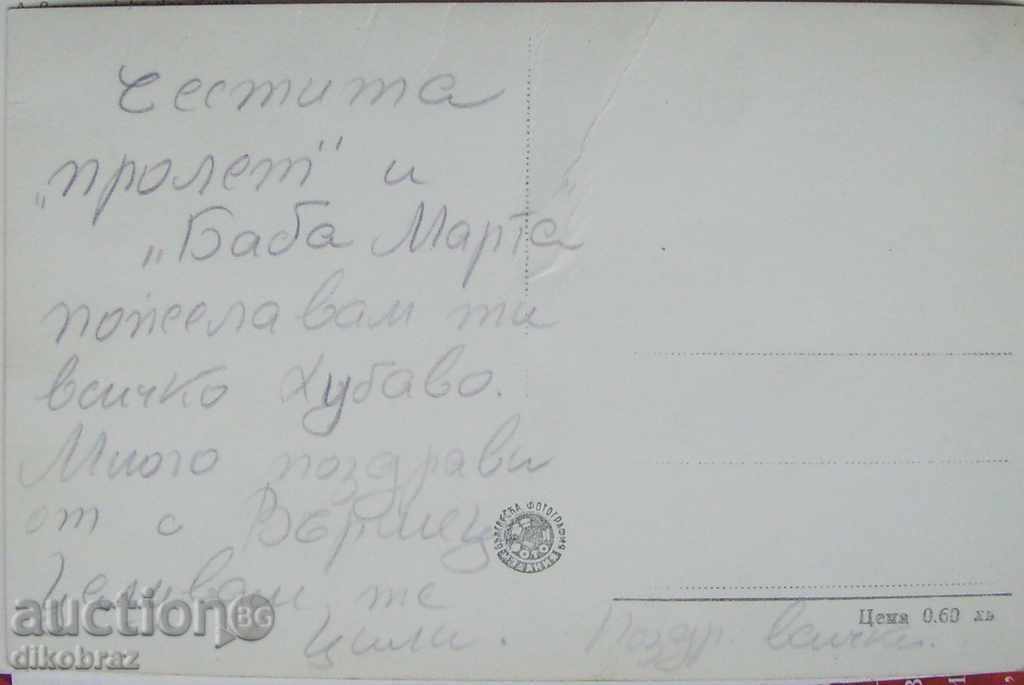 Честита
„пролет" и
„Баба Марта"
пожелавам ти
всичко хубаво.
Много поздрави
от с Вършец
Целувам те
Цили. Поздр. всички.
БЪЛГАРСКА ФОТОГРАФИЯ
ФОТО
ИЗДАНИЕ
Цена 0.60 лв
auction BG
dikobraz